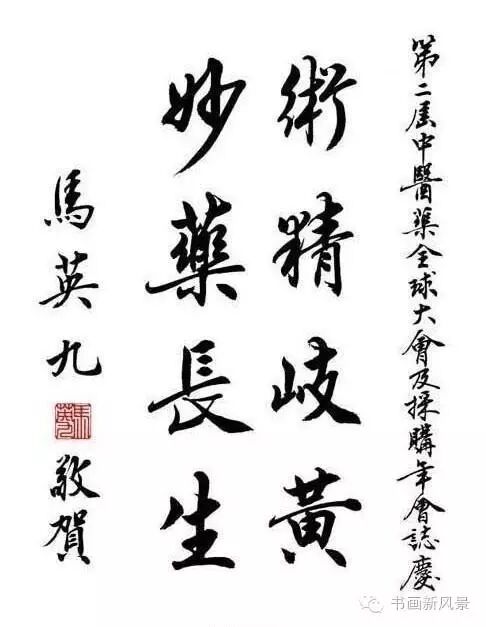 第二屆中醫藥全球大會及採購年會誌慶
術精岐黃
妙藥長生
馬英九
馬英九
敬賀
书画新风景